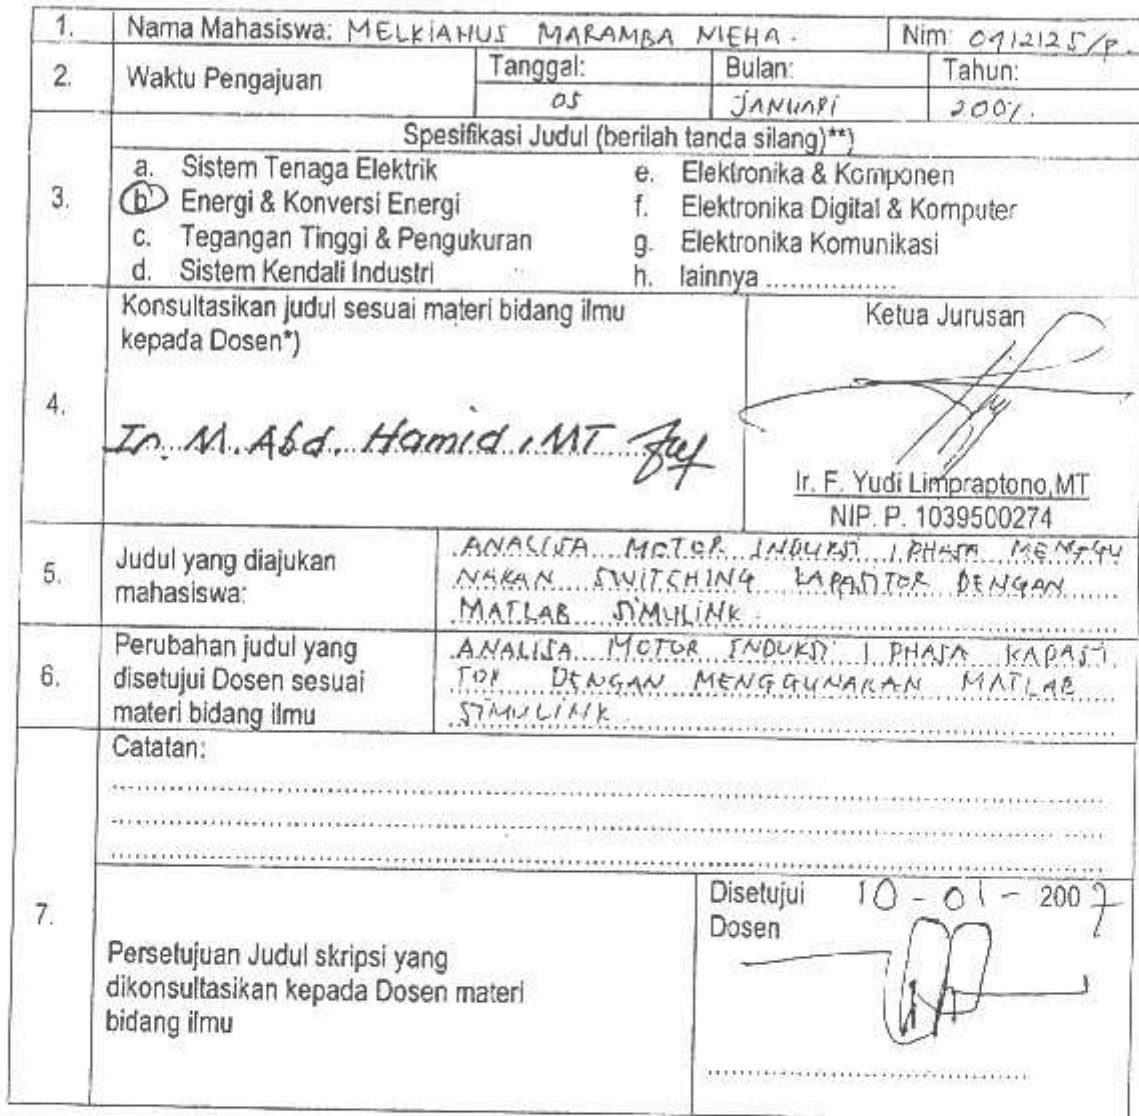 1. Nama Mahasiswa: MELKIANUS MARAMBA MEHA. Nim: 0912125/P.
2. Waktu Pengajuan Tanggal: Bulan: Tahun:
05 JANUARI
3. Spesifikasi Judul (berilah tanda silang)**)
a. Sistem Tenaga Elektrik e. Elektronika & Komponen
b Energi & Konversi Energi f. Elektronika Digital & Komputer
c. Tegangan Tinggi & Pengukuran g. Elektronika Komunikasi
d. Sistem Kendali Industri h. lainnya ................
4. Konsultasikan judul sesuai materi bidang ilmu
kepada Dosen*)
Ir. M. Abd. Hamid, MT
Ketua Jurusan
Ir. F. Yudi Limpraptono,MT
NIP. P. 1039500274
5. Judul yang diajukan
mahasiswa:
ANALISA MOTOR INDUKSI 1 PHASA MENGGU
NAKAN SWITCHING KAPASITOR DENGAN
MATLAB SIMULINK.
6. Perubahan judul yang
disetujui Dosen sesuai
materi bidang ilmu
ANALISA MOTOR INDUKSI 1 PHASA KAPASI
TOR DENGAN MENGGUNAKAN MATLAB
SIMULINK
7. Catatan:
Persetujuan Judul skripsi yang
dikonsultasikan kepada Dosen materi
bidang ilmu
Disetujui 10 - 01 - 2007
Dosen